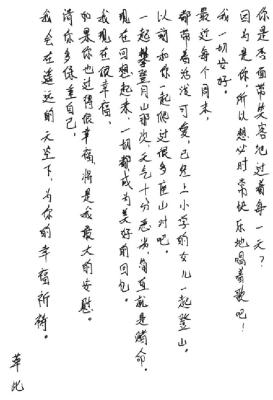 你是否面带笑容地过着每一天？
因为是你，所以想必时常快乐地唱着歌吧！
我一切安好。
最近每个周末，
都带着活泼可爱，已经上小学的女儿一起登山。
以前和你一起爬过很多座山对吧。
一起攀登月山那次，天气十分恶劣，简直就是赌命。
现在回想起来，一切都成为美好的回忆。
我现在很幸福。
如果你也过得很幸福，将是我最大的安慰。
请你多保重自己。
我会在遥远的天空下，为你的幸福祈祷。
草此